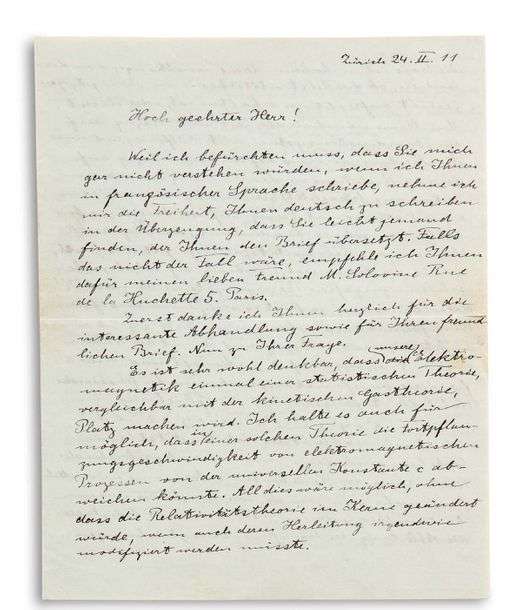 Zürich 24. II. 11
Hoch geehrter Herr!
Weil ich befürchten muss, dass Sie mich
gar nicht verstehen würden, wenn ich Ihnen
in französischer Sprache schriebe, nehme ich
mir die Freiheit, Ihnen deutsch zu schreiben
in der Überzeugung, dass Sie leicht jemand
finden, der Ihnen den Brief übersetzt. Falls
das nicht der Fall wäre, empfehle ich Ihnen
dafür meinen lieben Freund M. Solovine Rue
de la Huchette 5. Paris.
Zuerst danke ich Ihnen herzlich für die
interessante Abhandlung sowie für Ihren freund
lichen Brief. Nun zu Ihrer Frage.
Es ist sehr wohl denkbar, dass unsere Elektro-
magnetik einmal einer statistischen Theorie,
vergleichbar mit der kinetischen Gastheorie,
Platz machen wird. Ich halte es auch für
möglich, dass in einer solchen Theorie die Fortpflan-
zungsgeschwindigkeit von elektromagnetischen
Prozessen von der universellen Konstante c ab-
weichen könnte. All dies wäre möglich, ohne
dass die Relativitätstheorie im Kerne geändert
würde, wenn auch deren Herleitung irgendwie
modifiziert werden müsste.